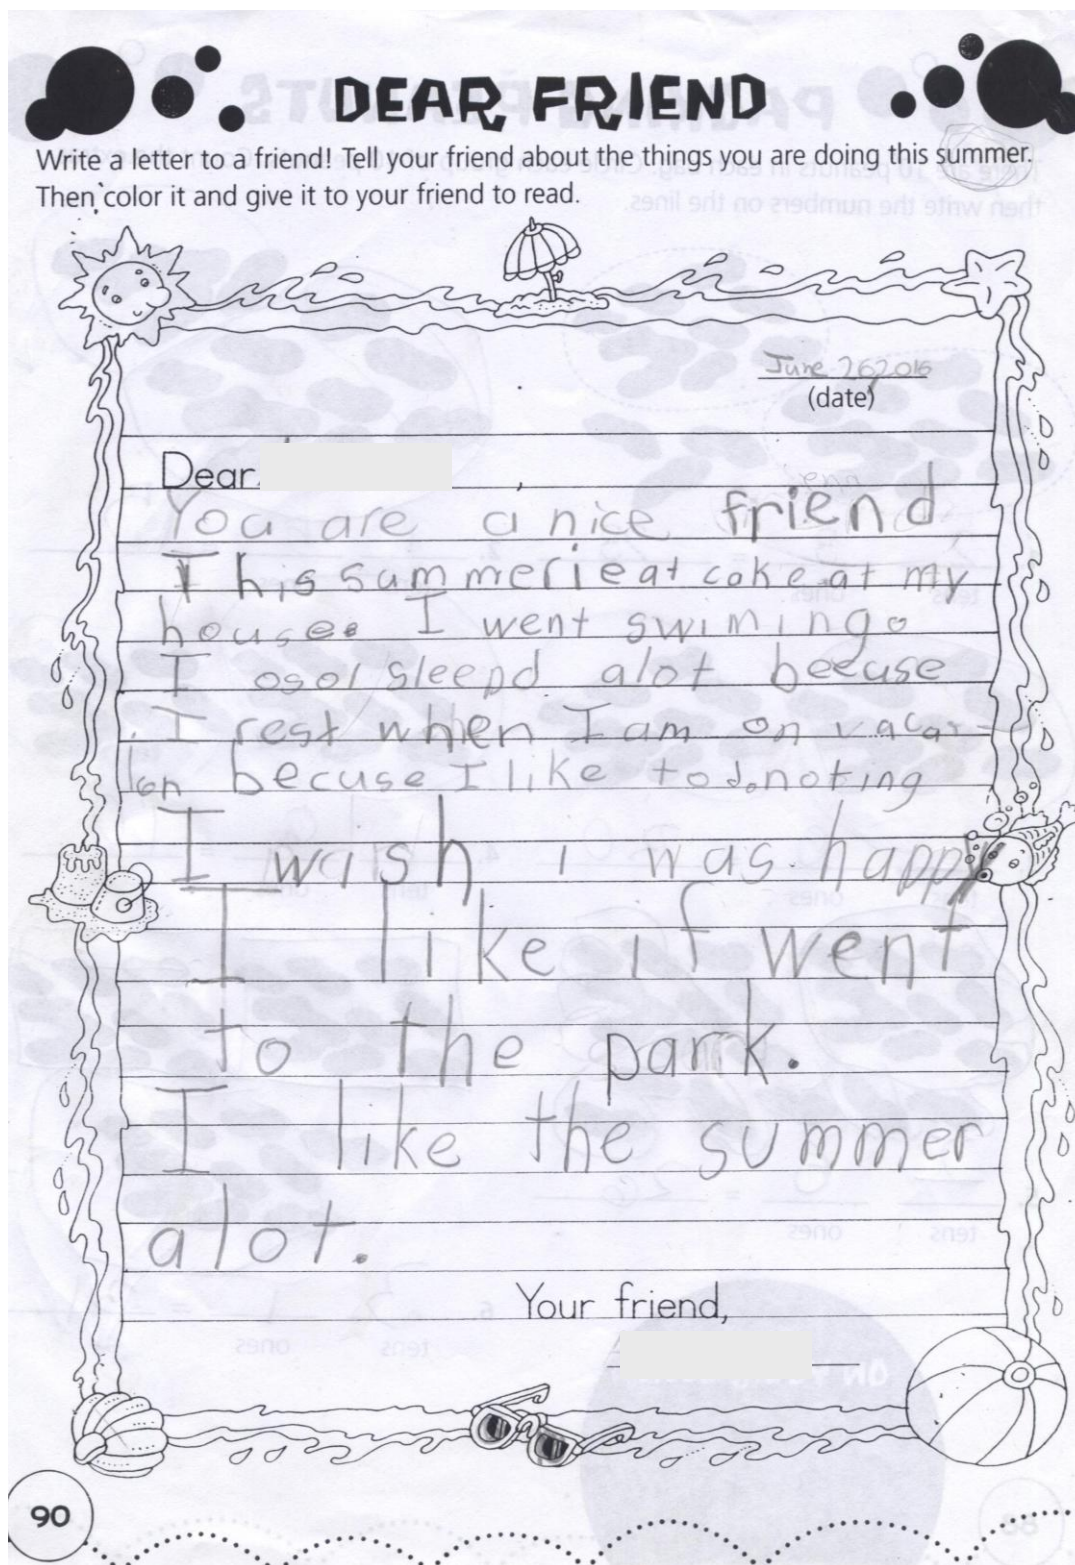 DEAR FRIEND
Write a letter to a friend! Tell your friend about the things you are doing this summer.
Then color it and give it to your friend to read.
June 26 2016
(date)
Dear ,
You are a nice friend
This summer i eat cake at my
house. I went swiming.
I osol sleepd alot becuse
I rest when I am on vacat
ion becuse I like to do noting
I wish i was happy
I like if went
to the park.
I like the summer
alot.
Your friend,
90